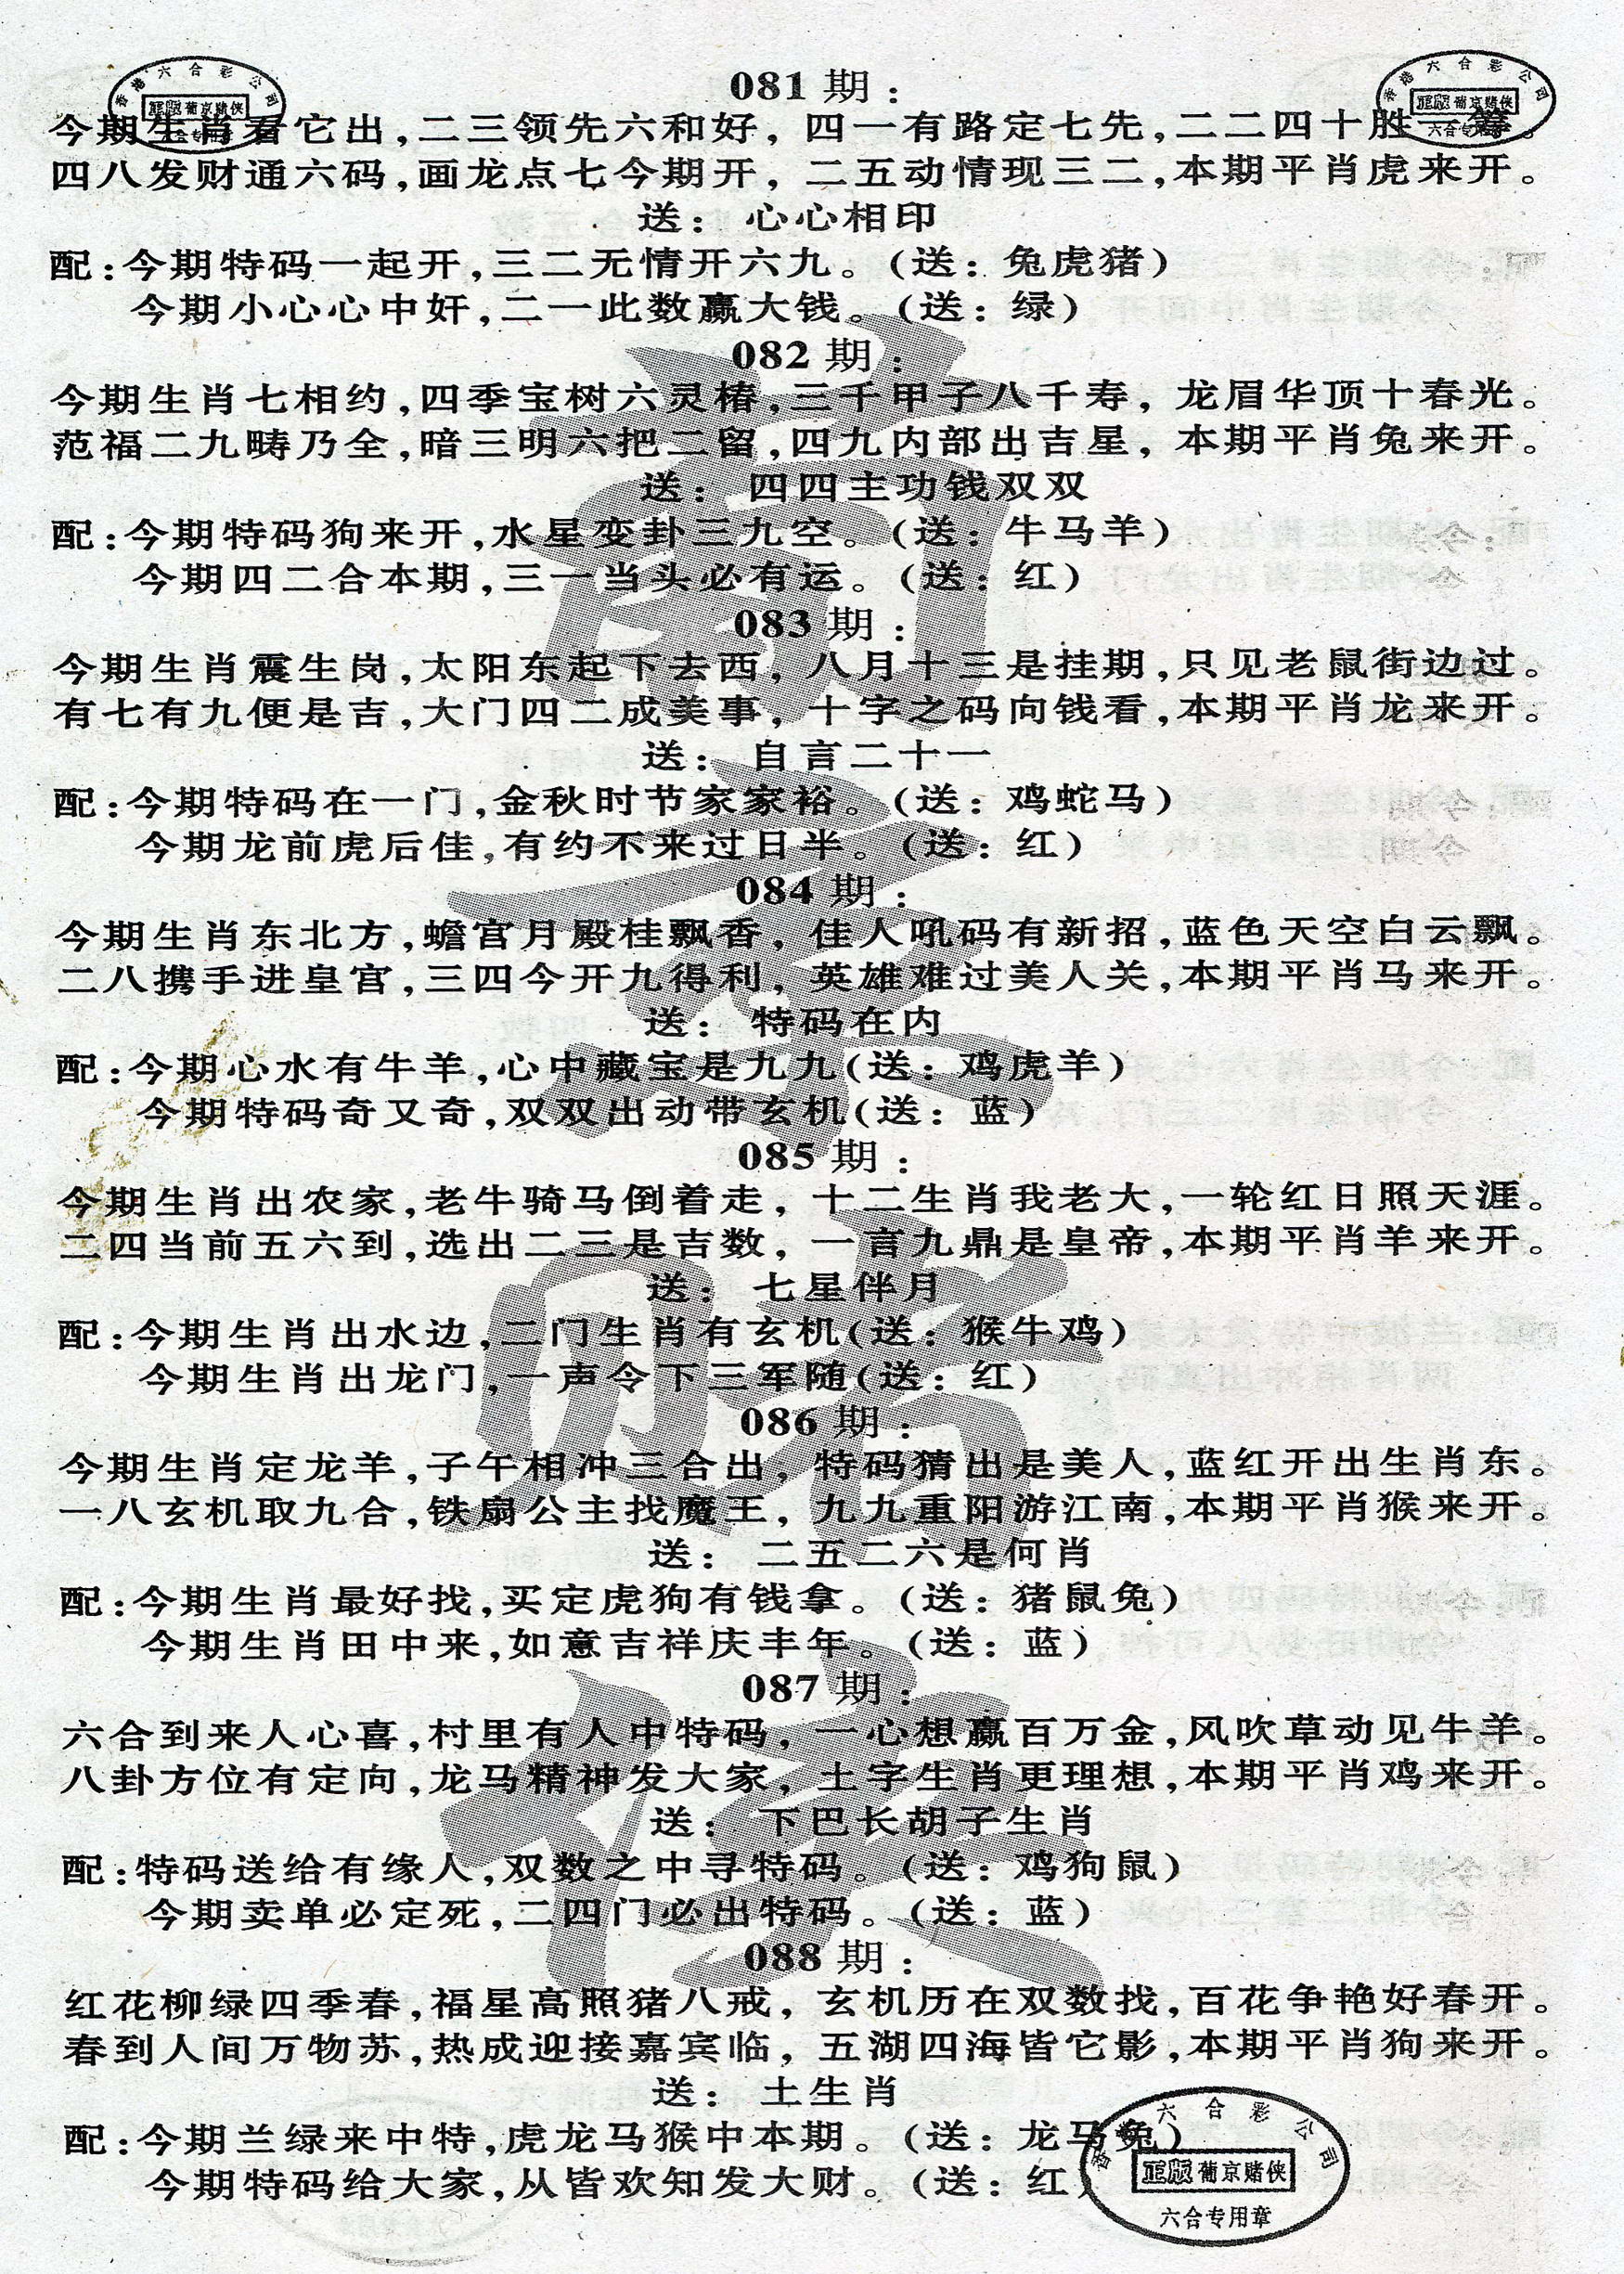 081 期：
今期生肖看它出,二三领先六和好, 四一有路定七先,二二四十胜一筹。
四八发财通六码,画龙点七今期开, 二五动情现三二,本期平肖虎来开。
送： 心心相印
配:今期特码一起开,三二无情开六九。(送：兔虎猪)
今期小心心中奸,二一此数赢大钱。(送：绿)
082 期：
今期生肖七相约,四季宝树六灵椿,三千甲子八千寿, 龙眉华顶十春光。
范福二九畴乃全,暗三明六把二留,四九内部出吉星, 本期平肖兔来开。
送： 四四主功钱双双
配:今期特码狗来开,水星变卦三九空。(送：牛马羊)
今期四二合本期,三一当头必有运。(送：红)
083 期：
今期生肖震生岗,太阳东起下去西, 八月十三是挂期,只见老鼠街边过。
有七有九便是吉,大门四二成美事, 十字之码向钱看,本期平肖龙来开。
送： 自言二十一
配:今期特码在一门,金秋时节家家裕。(送：鸡蛇马)
今期龙前虎后佳,有约不来过日半。(送：红)
084 期：
今期生肖东北方,蟾宫月殿桂飘香, 佳人吼码有新招,蓝色天空白云飘。
二八携手进皇官,三四今开九得利, 英雄难过美人关,本期平肖马来开。
送： 特码在内
配:今期心水有牛羊,心中藏宝是九九(送：鸡虎羊)
今期特码奇又奇,双双出动带玄机(送：蓝)
085 期：
今期生肖出农家,老牛骑马倒着走, 十二生肖我老大,一轮红日照天涯。
二四当前五六到,选出二三是吉数, 一言九鼎是皇帝,本期平肖羊来开。
送： 七星伴月
配:今期生肖出水边,二门生肖有玄机(送：猴牛鸡)
今期生肖出龙门,一声令下三军随(送：红)
086 期：
今期生肖定龙羊,子午相冲三合出, 特码猜出是美人,蓝红开出生肖东。
一八玄机取九合,铁扇公主找魔王, 九九重阳游江南,本期平肖猴来开。
送： 二五二六是何肖
配:今期生肖最好找,买定虎狗有钱拿。(送：猪鼠兔)
今期生肖田中来,如意吉祥庆丰年。(送：蓝)
087 期：
六合到来人心喜,村里有人中特码, 一心想赢百万金,风吹草动见牛羊。
八卦方位有定向,龙马精神发大家, 土字生肖更理想,本期平肖鸡来开。
送： 下巴长胡子生肖
配:特码送给有缘人,双数之中寻特码。(送：鸡狗鼠)
今期卖单必定死,二四门必出特码。(送：蓝)
088 期：
红花柳绿四季春,福星高照猪八戒, 玄机历在双数找,百花争艳好春开。
春到人间万物苏,热成迎接嘉宾临, 五湖四海皆它影,本期平肖狗来开。
送： 土生肖
配:今期兰绿来中特,虎龙马猴中本期。(送：龙马兔)
今期特码给大家,从皆欢知发大财。(送：红)
香港六合彩公司
正版葡京赌侠
六合专用章